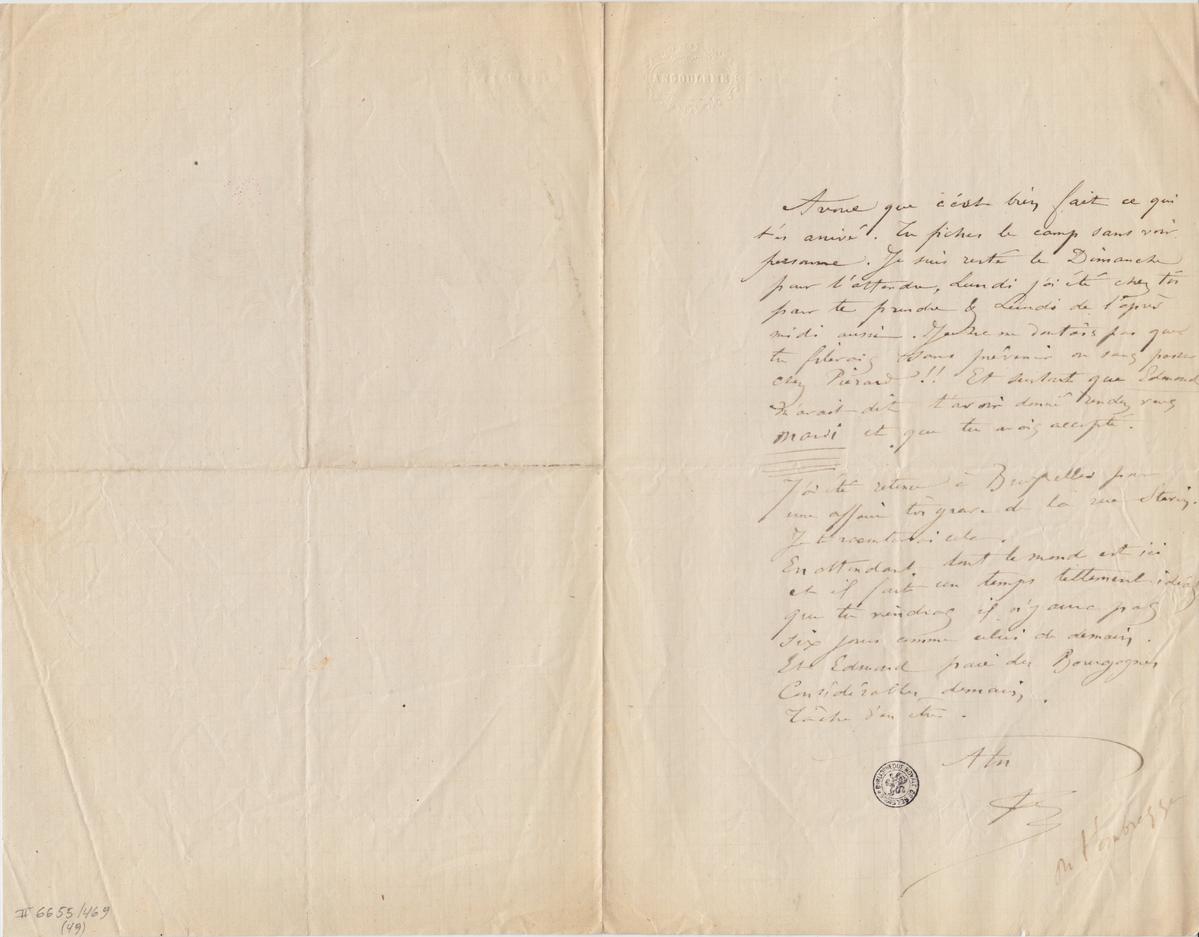 ANGOULEME
Avoue que c'est bien fait ce qui
t'es arrivé. Tu fiches le camp sans voir
personne. Je suis resté le Dimanche
pour t'attendre, Lundi j'ai été chez toi
pour te prendre & Lundi de l'après
midi aussi. ne doutais pas que
tu filerais sans prévenir ou sans passer
chez Piérard !! Et surtout que Edmond
m'avait dit t'avoir donné rendez vous
mardi et que tu avais accepté.
J'ai été retenu à Bruxelles par
une affaire très grave de la rue
Je te raconterai cela.
En attendant tout le monde est ici
et il fait un temps tellement idéal
que tu viendras il n'y aura pas
six jours comme celui de demain.
Et Edmond paie des Bourgognes
Considérables demain.
Tâche d'en être.
A toi
BIBLIOTHEQUE ROYALE DE BELGIQUE
II 6655/469
(49)